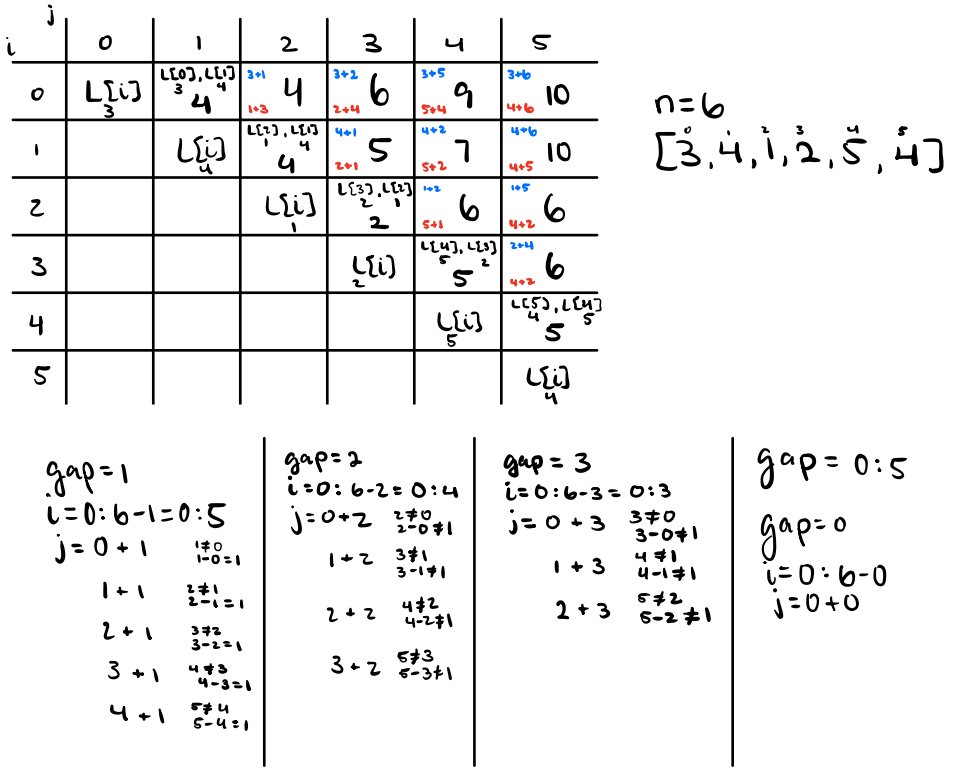 j
i 0 1 2 3 4 5
0 L[i] 3 L[0], L[1] 3 4 4 3+1 1+3 4 3+2 2+4 6 3+5 5+4 9 3+6 4+6 10
1 L[i] 4 L[2], L[1] 1 4 4 4+1 2+1 5 4+2 5+2 7 4+6 4+5 10
2 L[i] 1 L[3], L[2] 2 1 2 1+2 5+1 6 1+5 4+2 6
3 L[i] 2 L[4], L[3] 5 2 5 2+4 4+2 6
4 L[i] 5 L[5], L[4] 4 5 5
5 L[i] 4
n=6
0 1 2 3 4 5
[3, 4, 1, 2, 5, 4]
gap=1
i=0: 6-1=0:5
j=0+1 1≠0
1-0=1
1+1 2≠1
2-1=1
2+1 3≠2
3-2=1
3+1 4≠3
4-3=1
4+1 5≠4
5-4=1
gap=2
i=0: 6-2=0:4
j=0+2 2≠0
2-0≠1
1+2 3≠1
3-1≠1
2+2 4≠2
4-2≠1
3+2 5≠3
5-3≠1
gap=3
i=0: 6-3=0:3
j=0+3 3≠0
3-0≠1
1+3 4≠1
4-1≠1
2+3 5≠2
5-2≠1
gap=0:5
gap=0
i=0:6-0
j=0+0